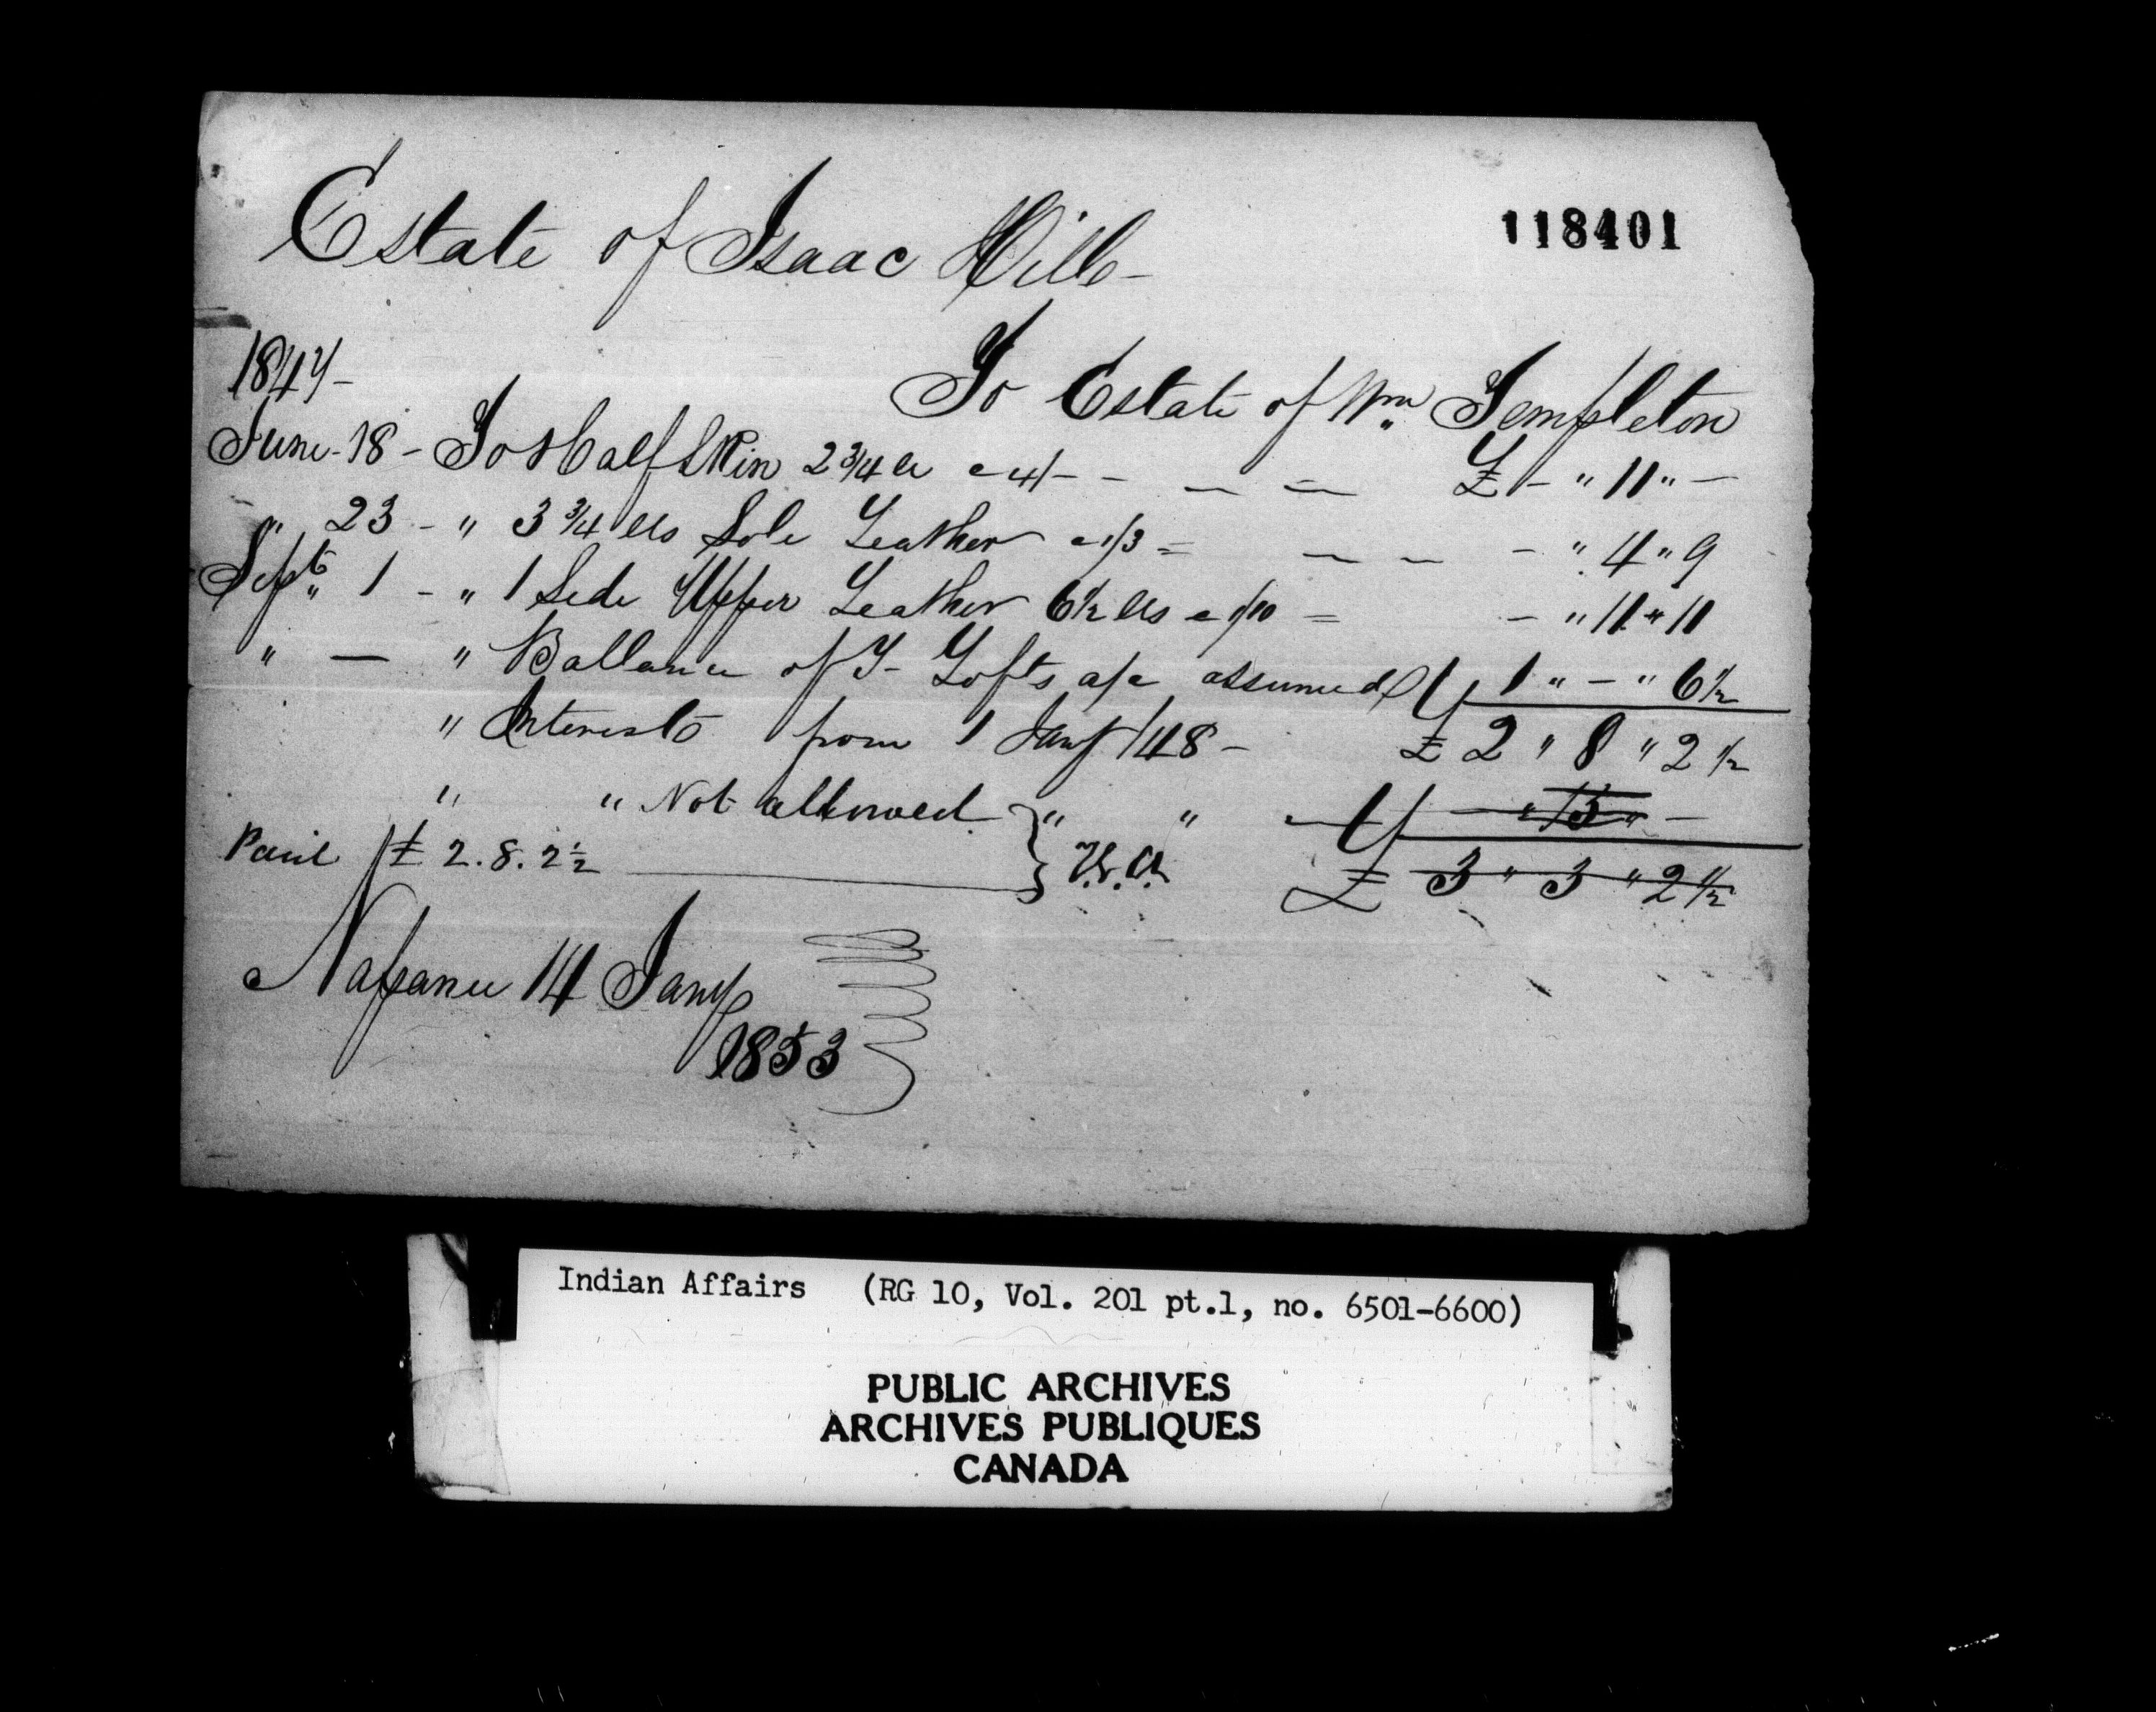 118401
Estate of Isaac Hill
1847-
To Estate of Wm Templeton
June 18 - To 1 Calf Skin 2 3/4 lb @ 4/- - — — £ - " 11 " -
" 23 - " 3 3/4 lbs Sole Leather @ 1/3 = — — - " 4 " 9
Sept 1 - " 1 Side Upper Leather 6 1/2 lbs @ 1/10 = - " 11 " 11
" — " Ballance of Lofts a/c assumed 1 " - " 6 1/2
" Interest from 1 Jany /48 - £ 2 " 8 " 2 1/2
" " Not allowed } " " - " 15 " -
Paid £ 2. 8. 2 1/2 £ 3 " 3 " 2 1/2
Napanee 14 Jany
1853
Indian Affairs (RG 10, Vol. 201 pt.1, no. 6501-6600)
PUBLIC ARCHIVES
ARCHIVES PUBLIQUES
CANADA